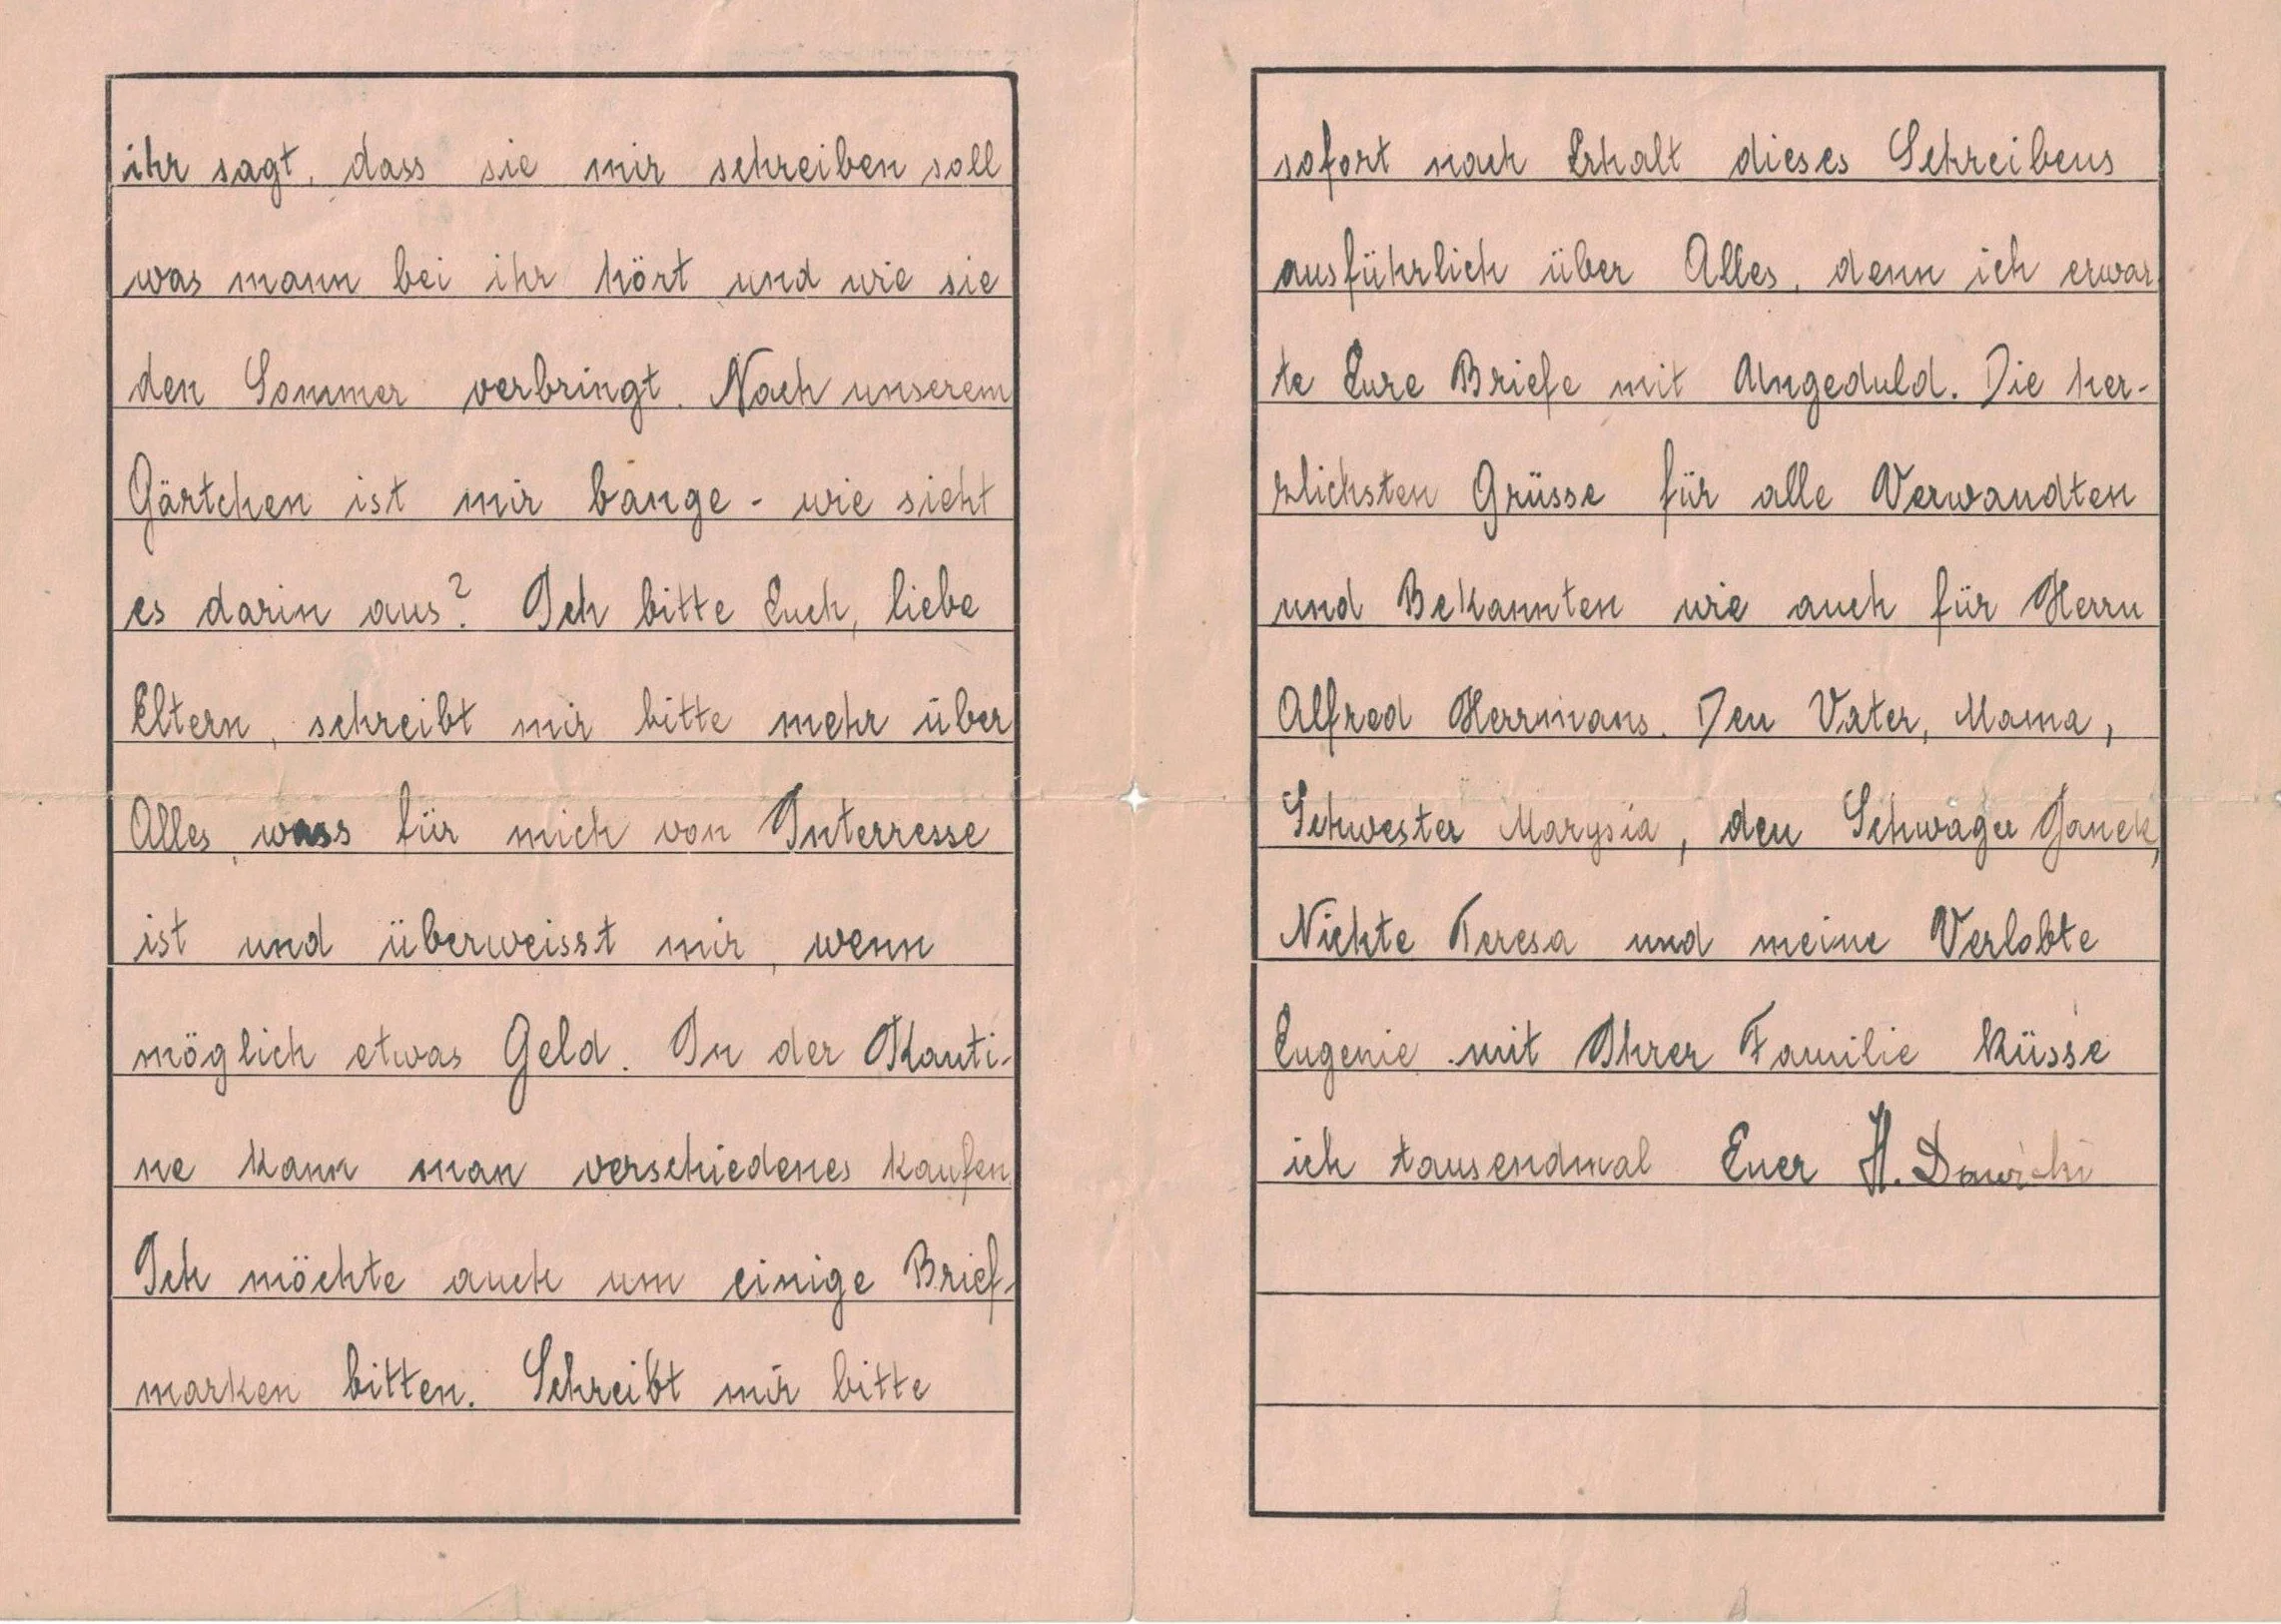 ihr sagt, dass sie mir schreiben soll
was mann bei ihr hört und wie sie
den Sommer verbringt. Nach unserem
Gärtchen ist mir bange - wie sieht
es darin aus? Ich bitte Euch, liebe
Eltern, schreibt mir bitte mehr über
Alles, wass für mich von Interresse
ist und überweisst mir, wenn
möglich etwas Geld. In der Kanti-
ne kann man verschiedenes kaufen
Ich möchte auch um einige Brief-
marken bitten. Schreibt mir bitte
sofort nach Erhalt dieses Schreibens
ausführlich über Alles, denn ich erwar
te Eure Briefe mit Ungeduld. Die her-
zlichsten Grüsse für alle Verwandten
und Bekannten wie auch für Herrn
Alfred Herrmans. Den Vater, Mama,
Schwester Marysia, den Schwager Janek,
Nichte Teresa und meine Verlobte
Eugenie mit Ihrer Familie küsse
ich tausendmal Euer H.